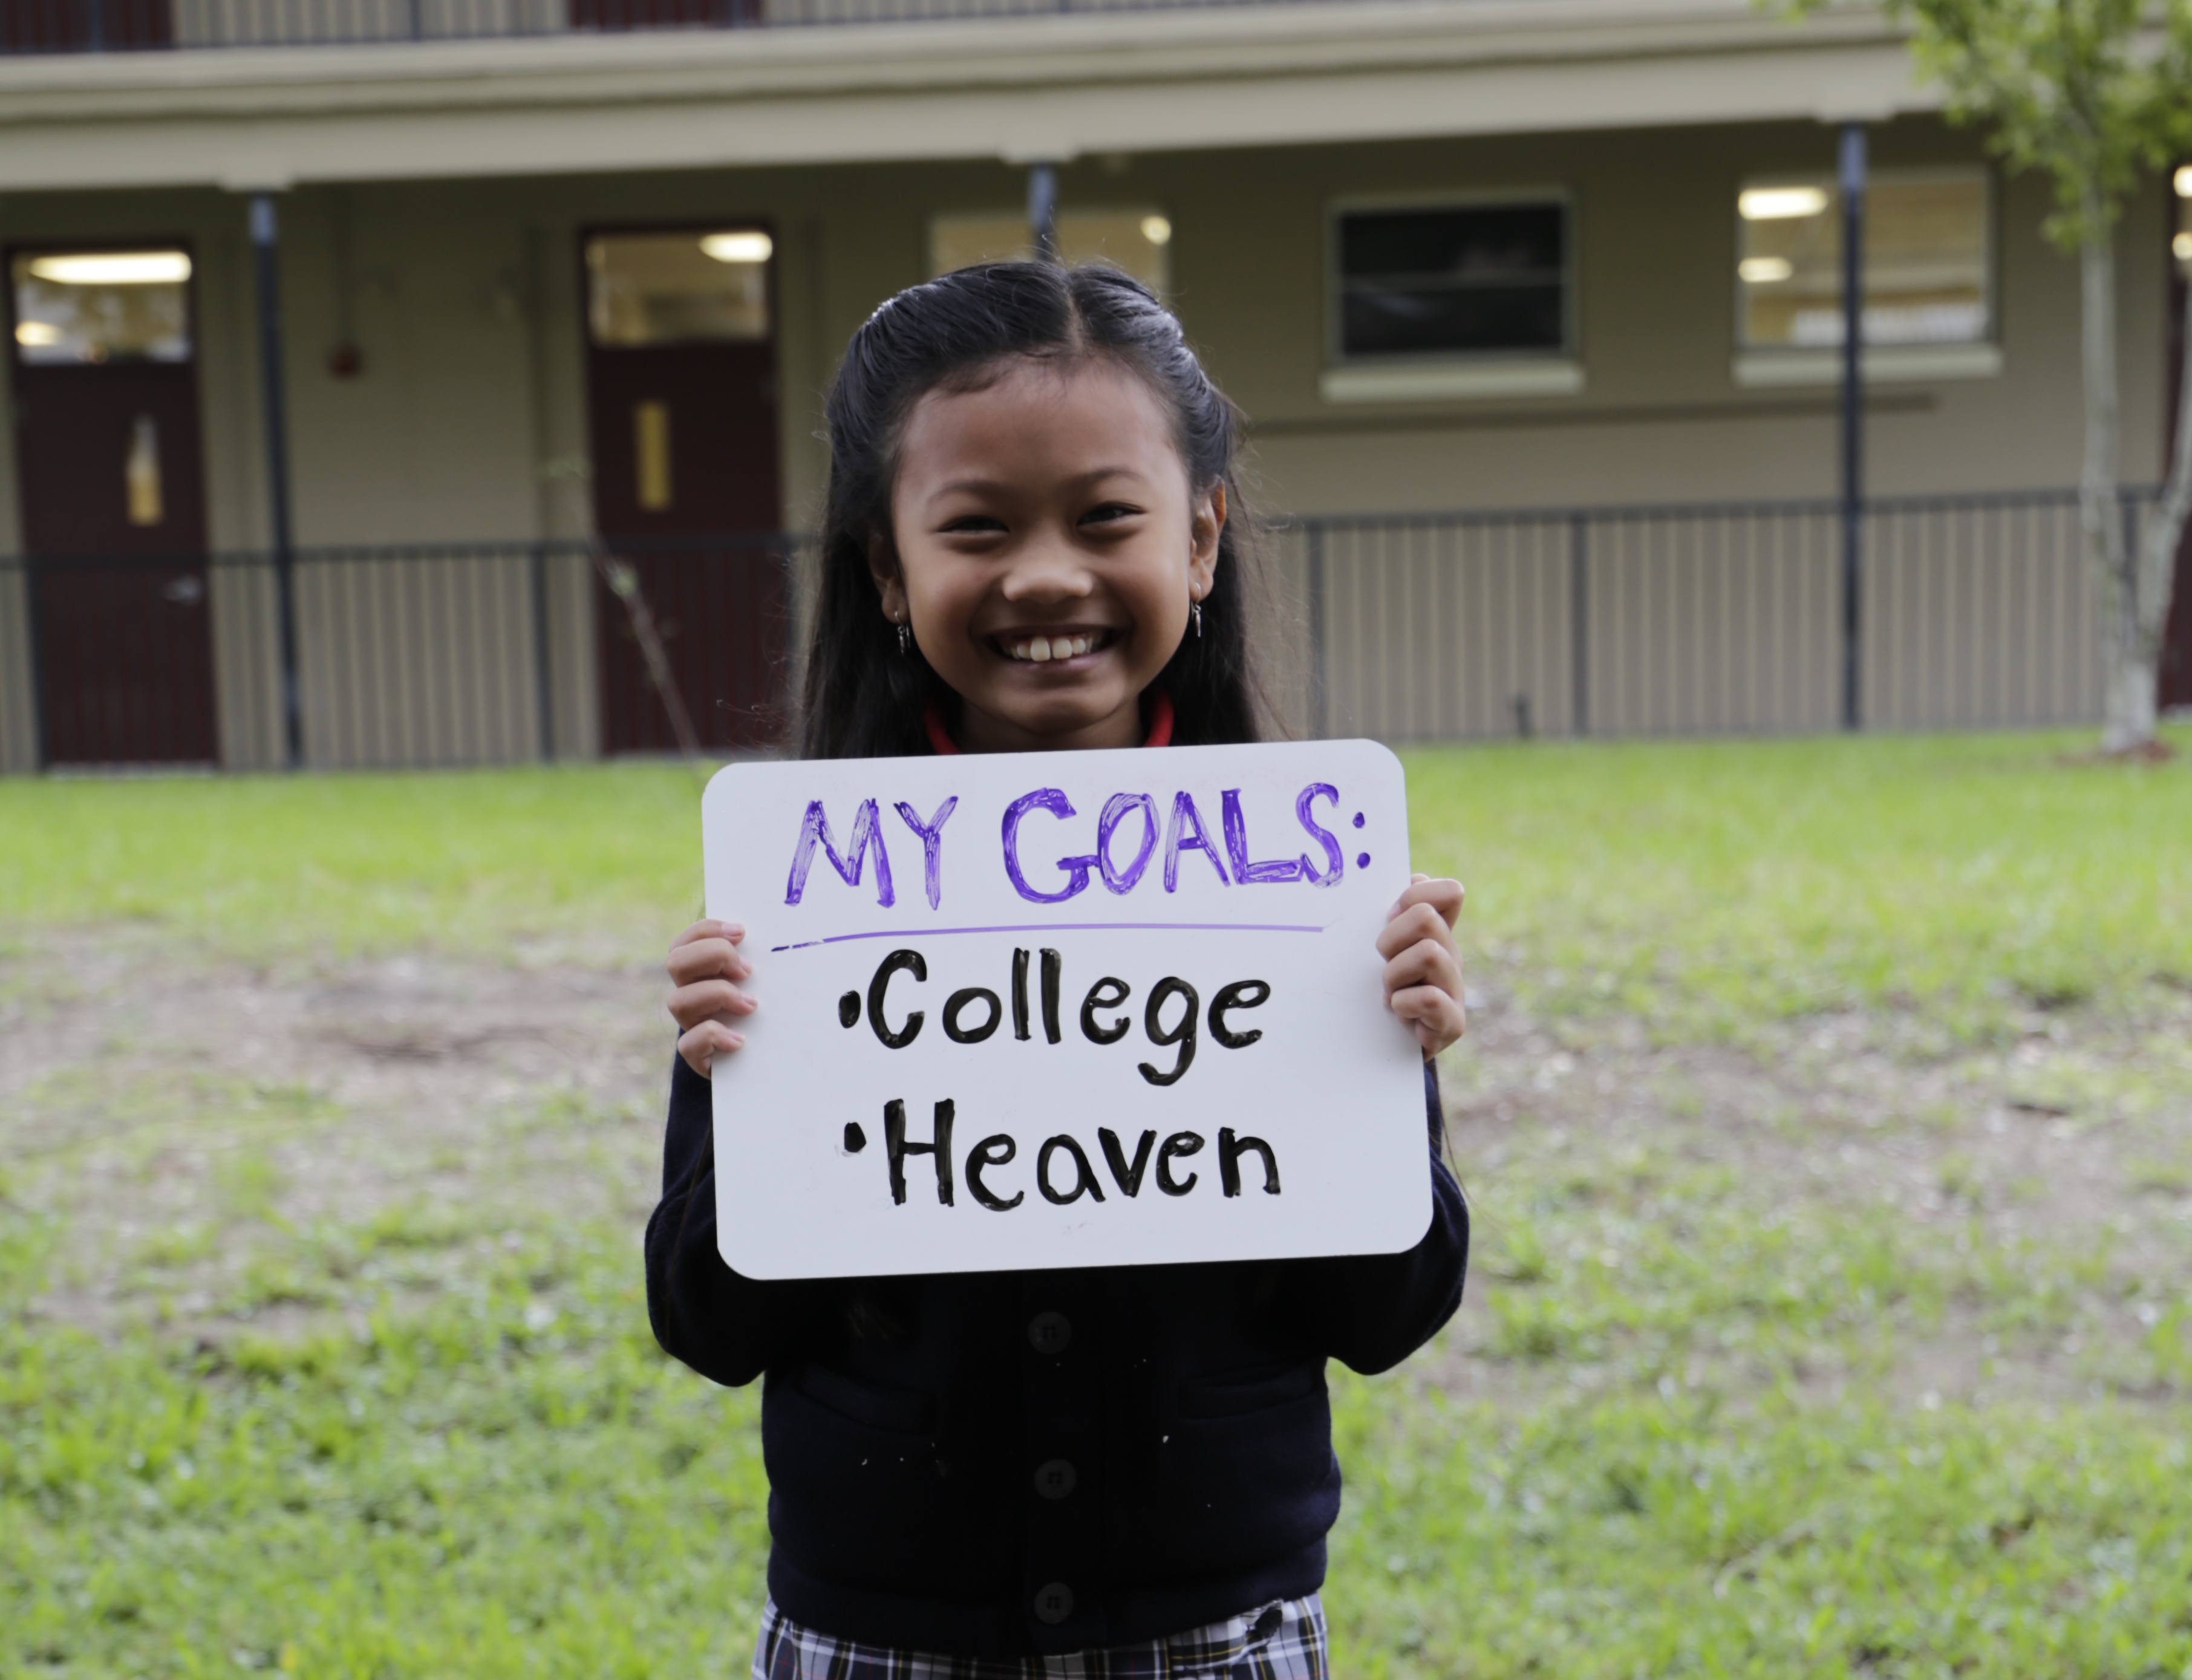 MY GOALS:
•College
•Heaven